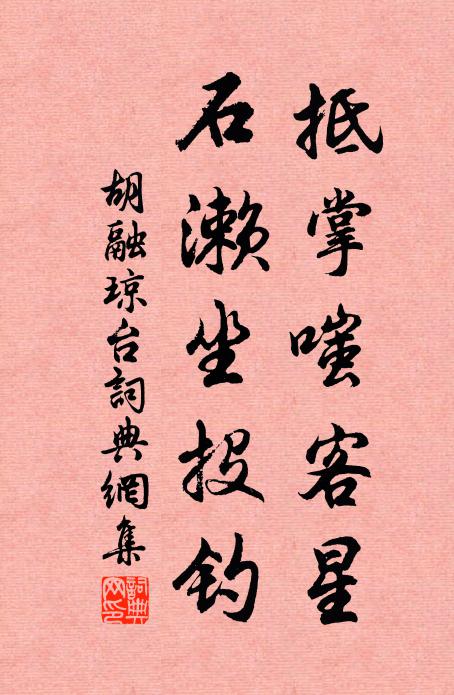 抵掌嗤客星
石濑坐投钓
胡融琼台詞典網集
詞典网印